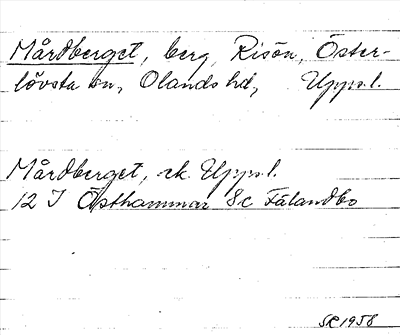 Mårdberget, berg, Risön, Öster-
lövsta sn, Olands hd, Upps.l.
Mårdberget, ek. Upps.l.
12 I Östhammar Sc Fälandbo
SR 1958